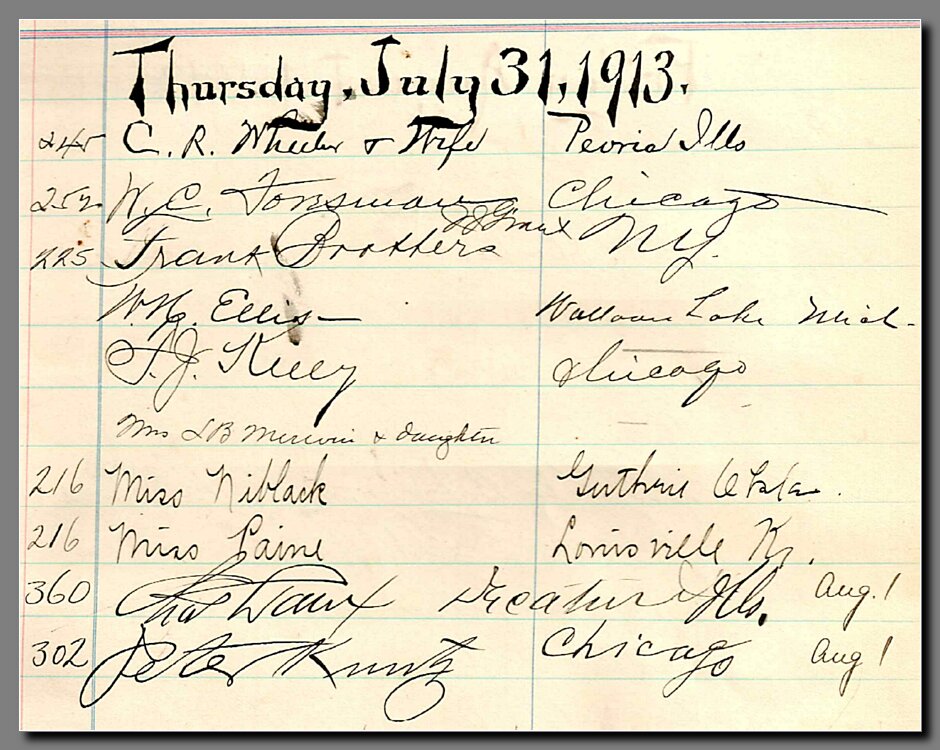 Thursday, July 31, 1913.
245 C. R. Wheeler & Wife Peoria Ills
252 W. C. Forsman Chicago
225 Frank Brothers N.Y.
W. H. Ellis Walloon Lake Mich.
F. J. Kelley Chicago
Mrs & daughter
216 Miss Niblack Guthrie Okla.
216 Miss Paine Louisville Ky.
360 Chas Decatur Ills. Aug. 1
302 Peter Kuntz Chicago Aug 1